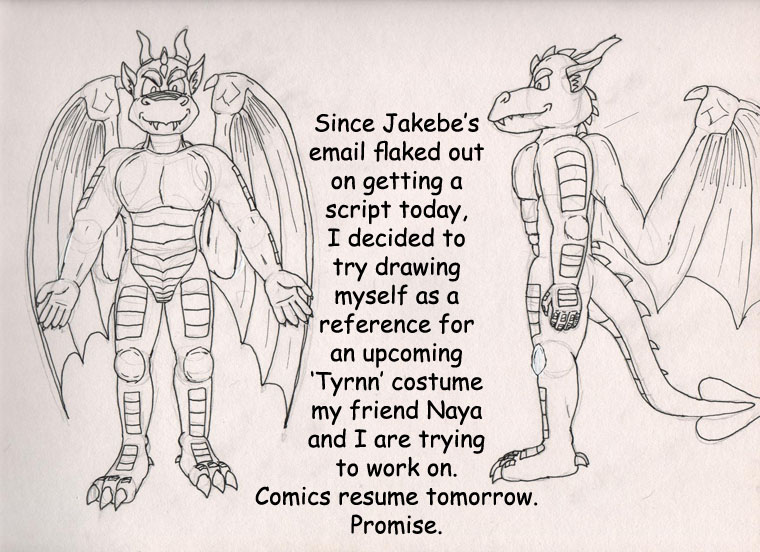 Since Jakebe's
email flaked out
on getting a
script today,
I decided to
try drawing
myself as a
reference for
an upcoming
'Tyrnn' costume
my friend Naya
and I are trying
to work on.
Comics resume tomorrow.
Promise.